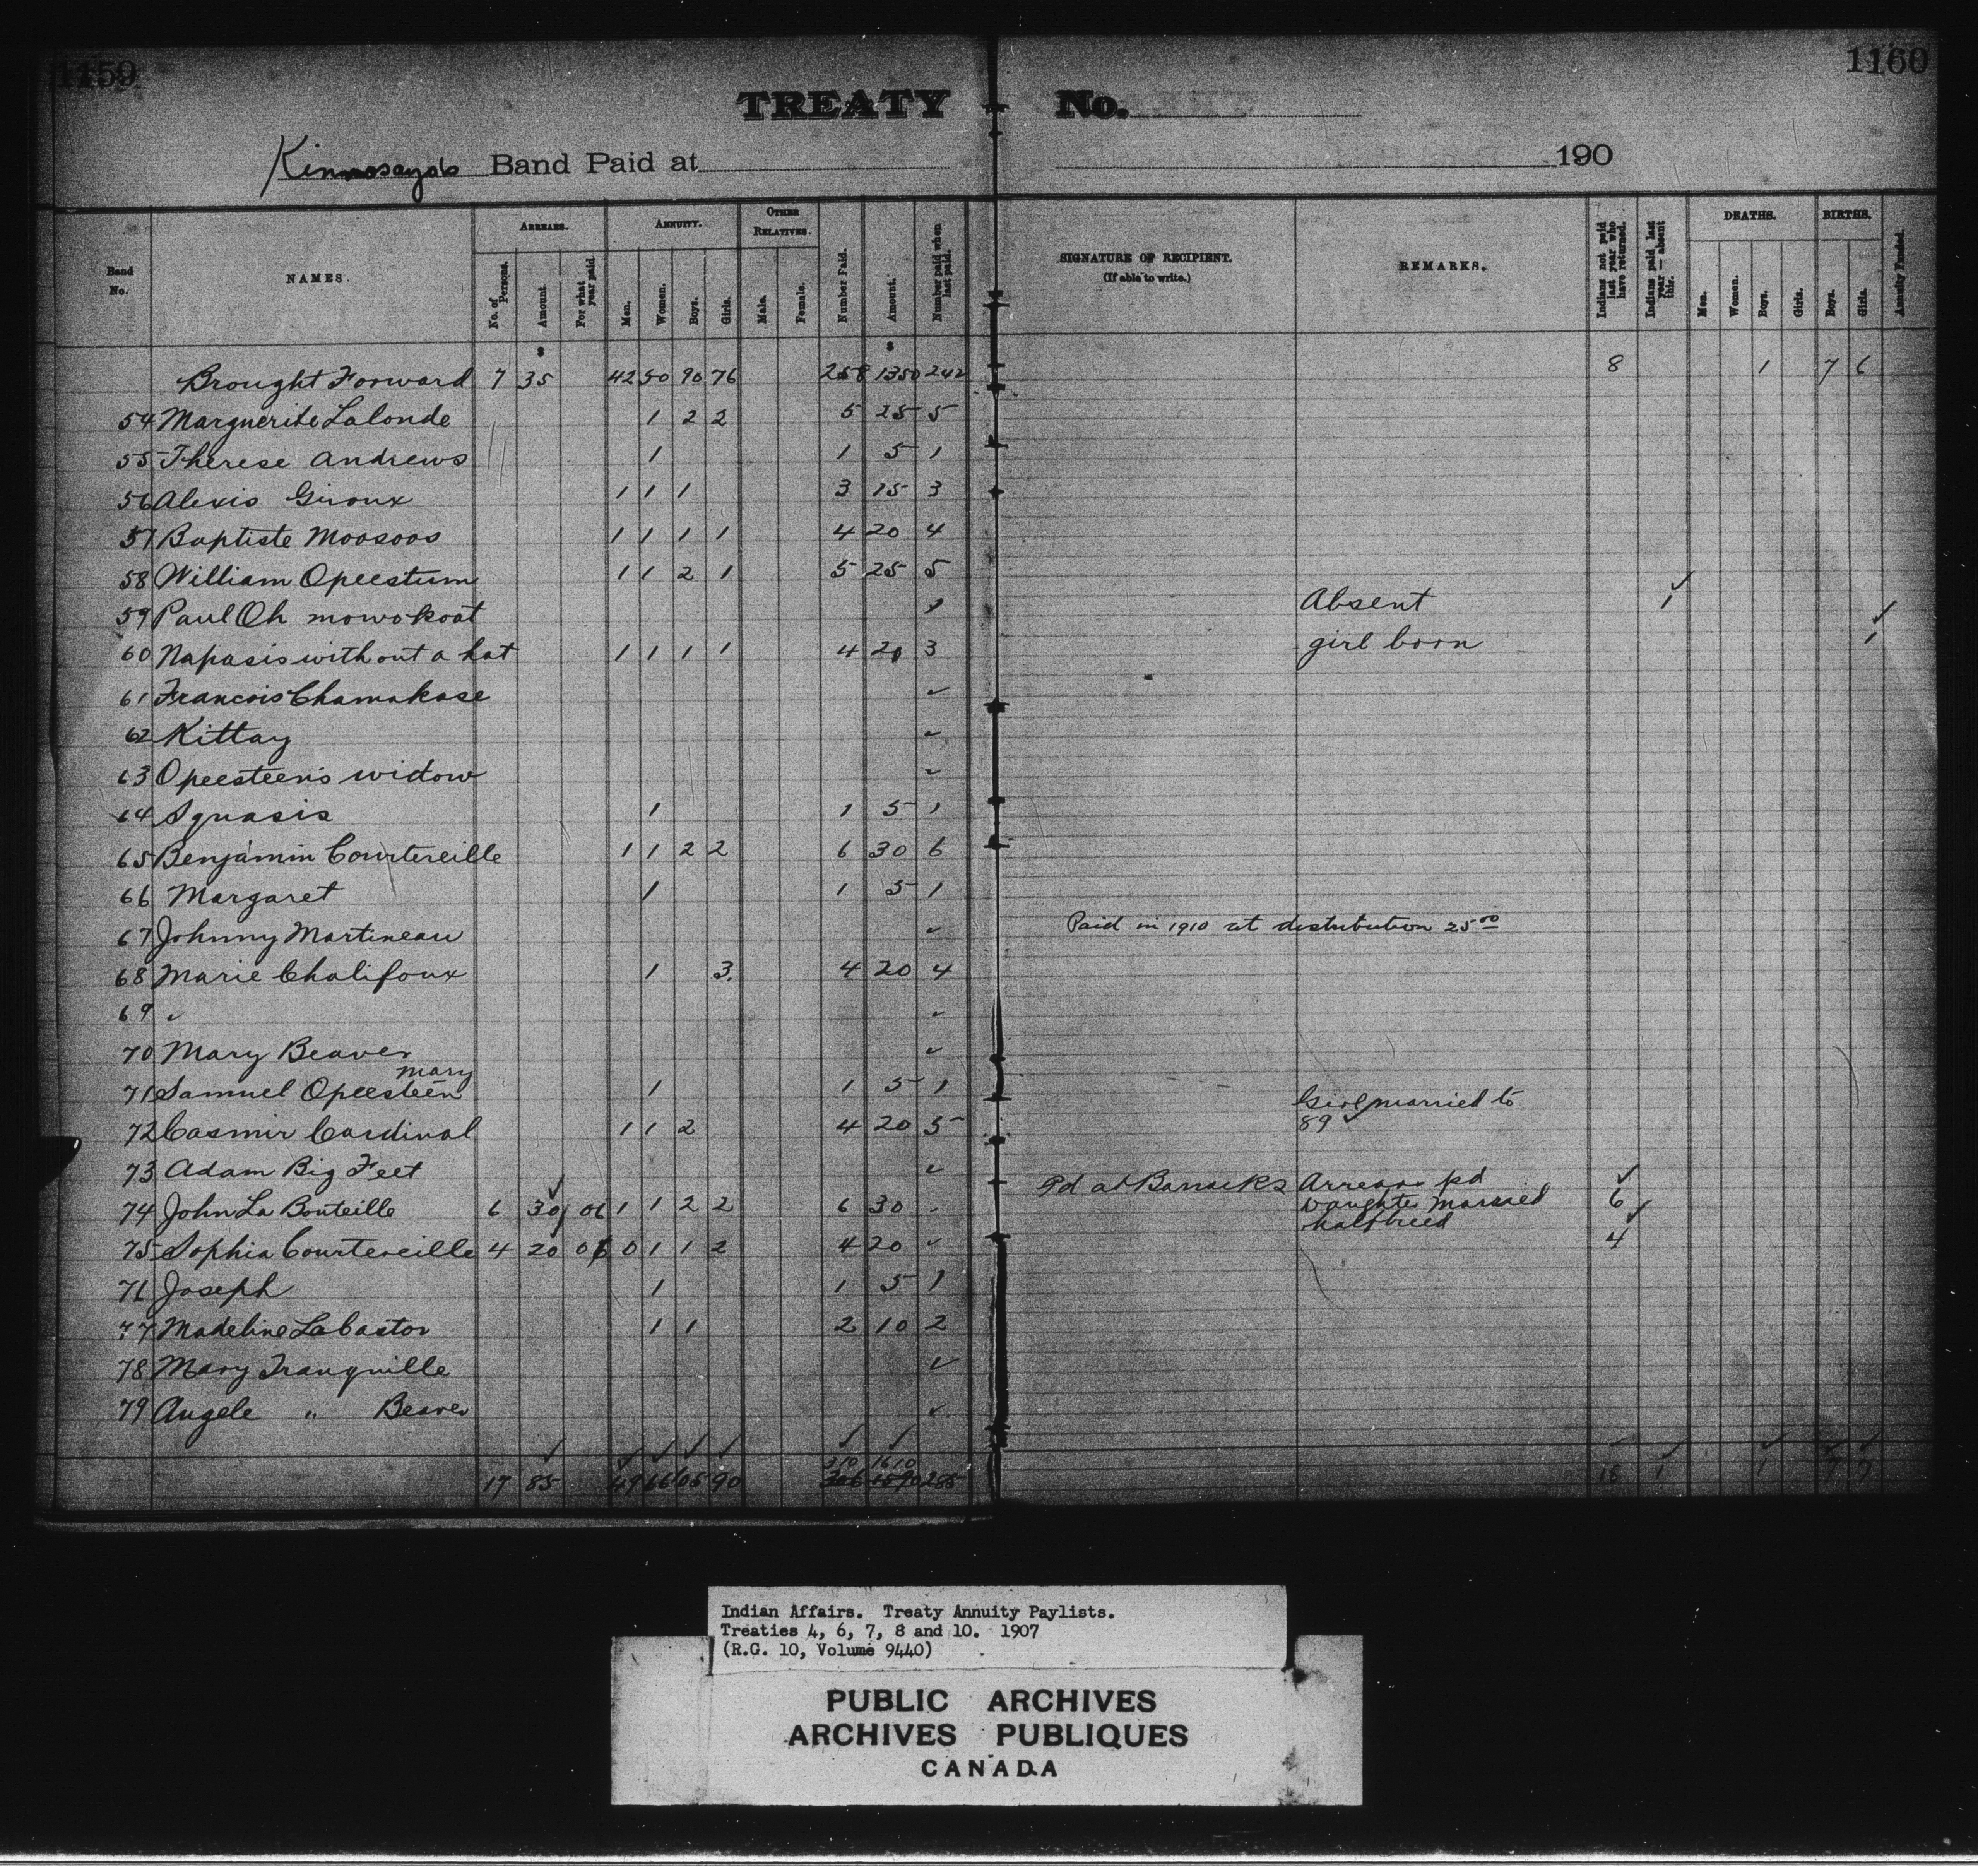 1159 1160
TREATY No.
Kinnosayo's Band Paid at 190
Band No. NAMES. ARREARS. No. of Persons. Amount For what year paid ANNUITY. Men. Women. Boys. Girls. OTHER RELATIVES. Male. Female. Number Paid. Amount. Number paid when last paid. SIGNATURE OF RECIPIENT. (If able to write.) REMARKS. Indians not paid last year who have returned. Indians paid last year — absent this. DEATHS. Men. Women. Boys. Girls. BIRTHS. Boys. Girls. Annuity Funded.
$ $
Brought Forward 7 35 42 50 90 76 258 1350 242 8 1 7 6
54 Marguerite Lalonde 1 2 2 5 25 5
55 Therese Andrews 1 1 5 1
56 Alexis Giroux 1 1 1 3 15 3
57 Baptiste Moosoos 1 1 1 1 4 20 4
58 William Opeestum 1 1 2 1 5 25 5
59 Paul Oh mowokoat 1 Absent 1 ✓
60 Napasis without a hat 1 1 1 1 4 20 3 girl born 1 ✓
61 Francois Chamakase ✓
62 Kittay ✓
63 Opeesteen's widow ✓
64 Squasis 1 1 5 1
65 Benjamin Courtereille 1 1 2 2 6 30 6
66 Margaret 1 1 5 1
67 Johnny Martineau ✓ Paid in 1910 at distribution 25 00
68 Marie Chalifoux 1 3. 4 20 4
69 ✓ ✓
70 Mary Beaver ✓
mary
71 Samuel Opeesteen 1 1 5 1
72 Casmir Cardinal 1 1 2 4 20 5 Girl married to 89 ✓
73 Adam Big Feet ✓
74 John La Bouteille 6 30 06 1 1 2 2 6 30 Pd at Barracks Arrears pd 6 ✓
Daughter married halfbreed
75 Sophia Courtereille 4 20 06 0 1 1 2 4 20 ✓ 4 ✓
71 Joseph 1 1 5 1
77 Madeline Labastor 1 1 2 10 2
78 Mary Tranquille ✓
79 Angele " Beaver ✓
310 1610
17 85 49 66 105 90 306 1590 285 18 1 1 7 7
Indian Affairs. Treaty Annuity Paylists.
Treaties 4, 6, 7, 8 and 10. 1907
(R.G. 10, Volume 9440)
PUBLIC ARCHIVES
ARCHIVES PUBLIQUES
CANADA